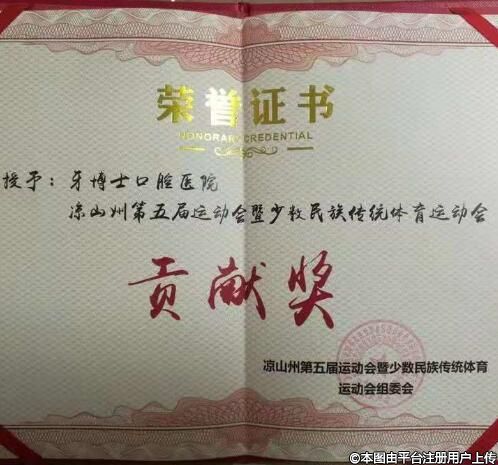 荣誉证书
HONORARY CREDENTIAL
授予：牙博士口腔医院
凉山州第五届运动会暨少数民族传统体育运动会
贡献奖
凉山州第五届运动会暨少数民族传统体育
运动会组委会
©本图由平台注册用户上传